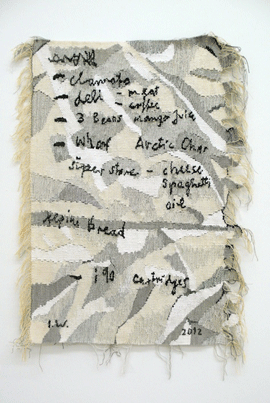 - Clamato
- deli - meat
- coffee
- 3 Beans mango Juice
- Wharf Arctic Char
Super Store - cheese
Spaghetti
oil
Alpine bread
- i90 cartridges
I.W. 2012